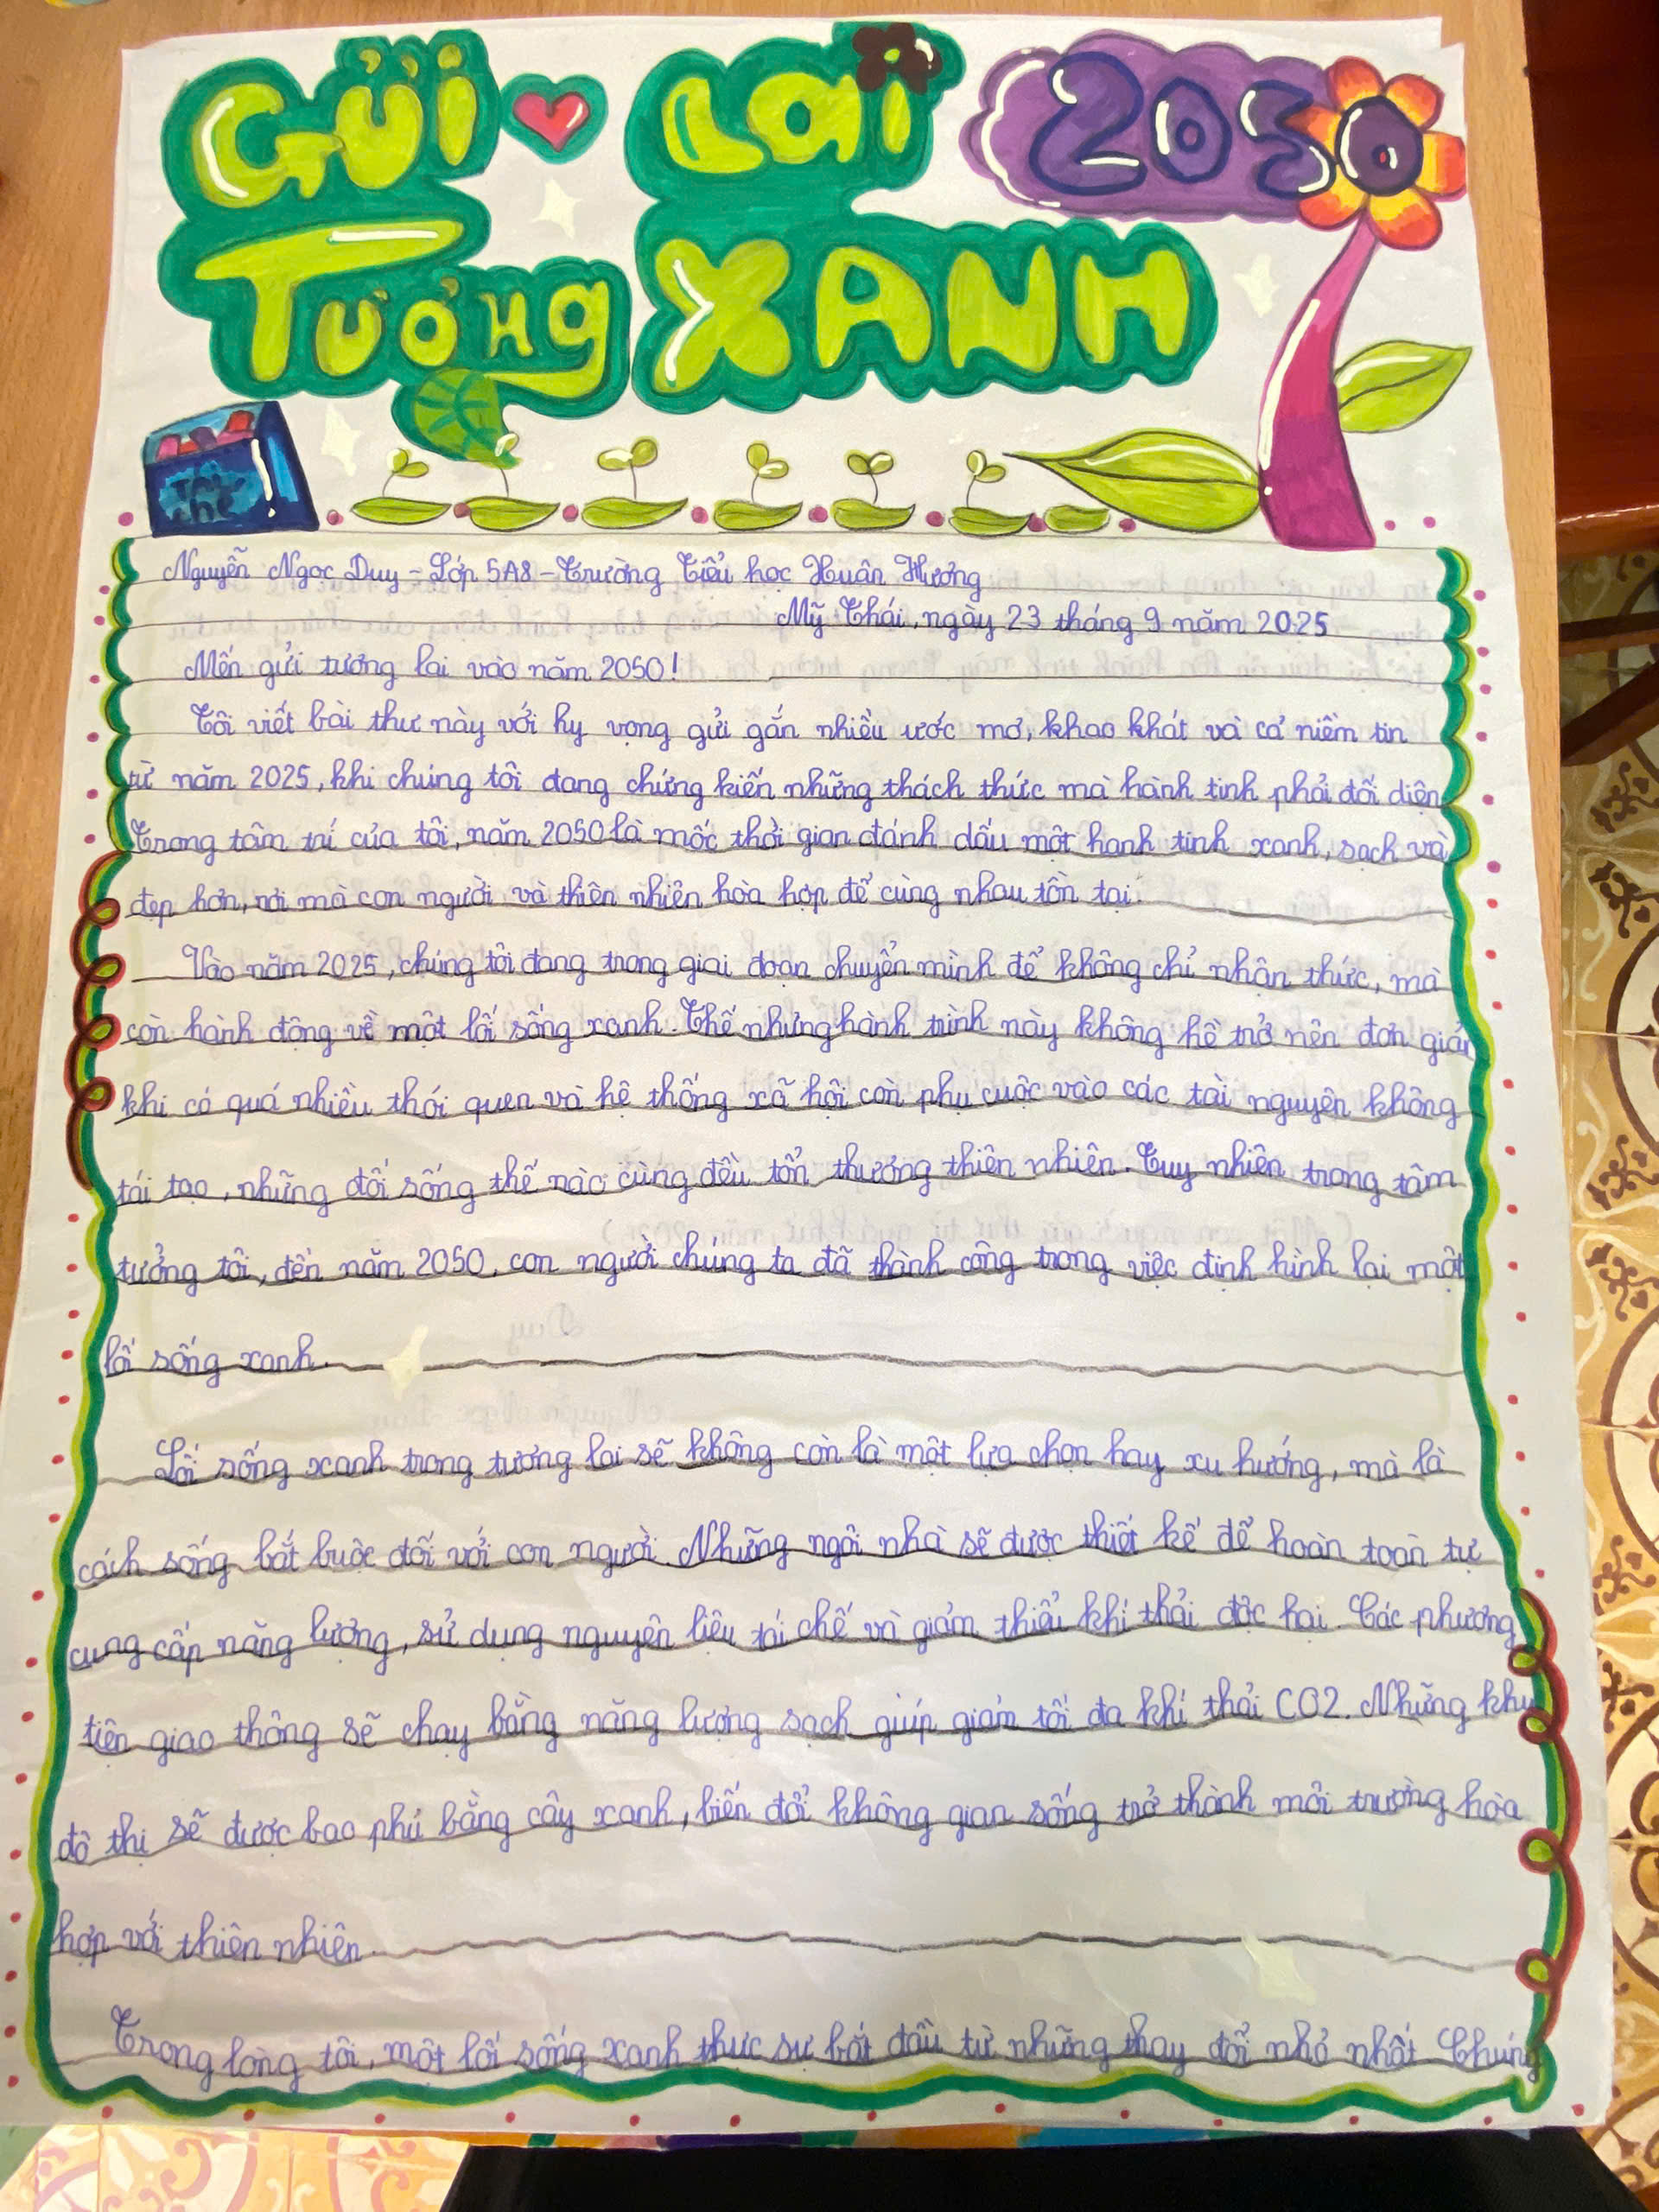 GỬI LAI 2050
TƯƠNG XANH
Tái chế
Nguyễn Ngọc Duy - Lớp 5A8 - Trường Tiểu học Xuân Hương
Mỹ Thái, ngày 23 tháng 9 năm 2025
Mến gửi tương lai vào năm 2050!
Tôi viết bài thư này với hy vọng gửi gắn nhiều ước mơ, khao khát và cả niềm tin
từ năm 2025, khi chúng tôi đang chứng kiến những thách thức mà hành tinh phải đối diện
Trong tâm trí của tôi, năm 2050 là mốc thời gian đánh dấu một hanh tinh xanh, sạch và
đẹp hơn, nơi mà con người và thiên nhiên hòa hợp để cùng nhau tồn tại.
Vào năm 2025, chúng tôi đang trong giai đoạn chuyển mình để không chỉ nhận thức, mà
còn hành động về một lối sống xanh. Thế nhưng hành trình này không hề trở nên đơn giản
khi có quá nhiều thói quen và hệ thống xã hội còn phụ cuộc vào các tài nguyên không
tái tạo, những đối sống thế nào cũng đều tổn thương thiên nhiên. Tuy nhiên trong tâm
tưởng tôi, đến năm 2050, con người chúng ta đã thành công trong việc định hình lại một
lối sống xanh.
Lối sống xanh trong tương lai sẽ không còn là một lựa chọn hay xu hướng, mà là
cách sống bắt buộc đối với con người. Những ngôi nhà sẽ được thiết kế để hoàn toàn tự
cung cấp năng lượng, sử dụng nguyên liệu tái chế và giảm thiểu khí thải độc hại. Các phương
tiện giao thông sẽ chạy bằng năng lượng sạch, giúp giảm tối đa khí thải CO2. Những khu
đô thị sẽ được bao phủ bằng cây xanh, biến đổi không gian sống trở thành môi trường hòa
hợp với thiên nhiên.
Trong lòng tôi, một lối sống xanh thực sự bắt đầu từ những thay đổi nhỏ nhất. Chúng